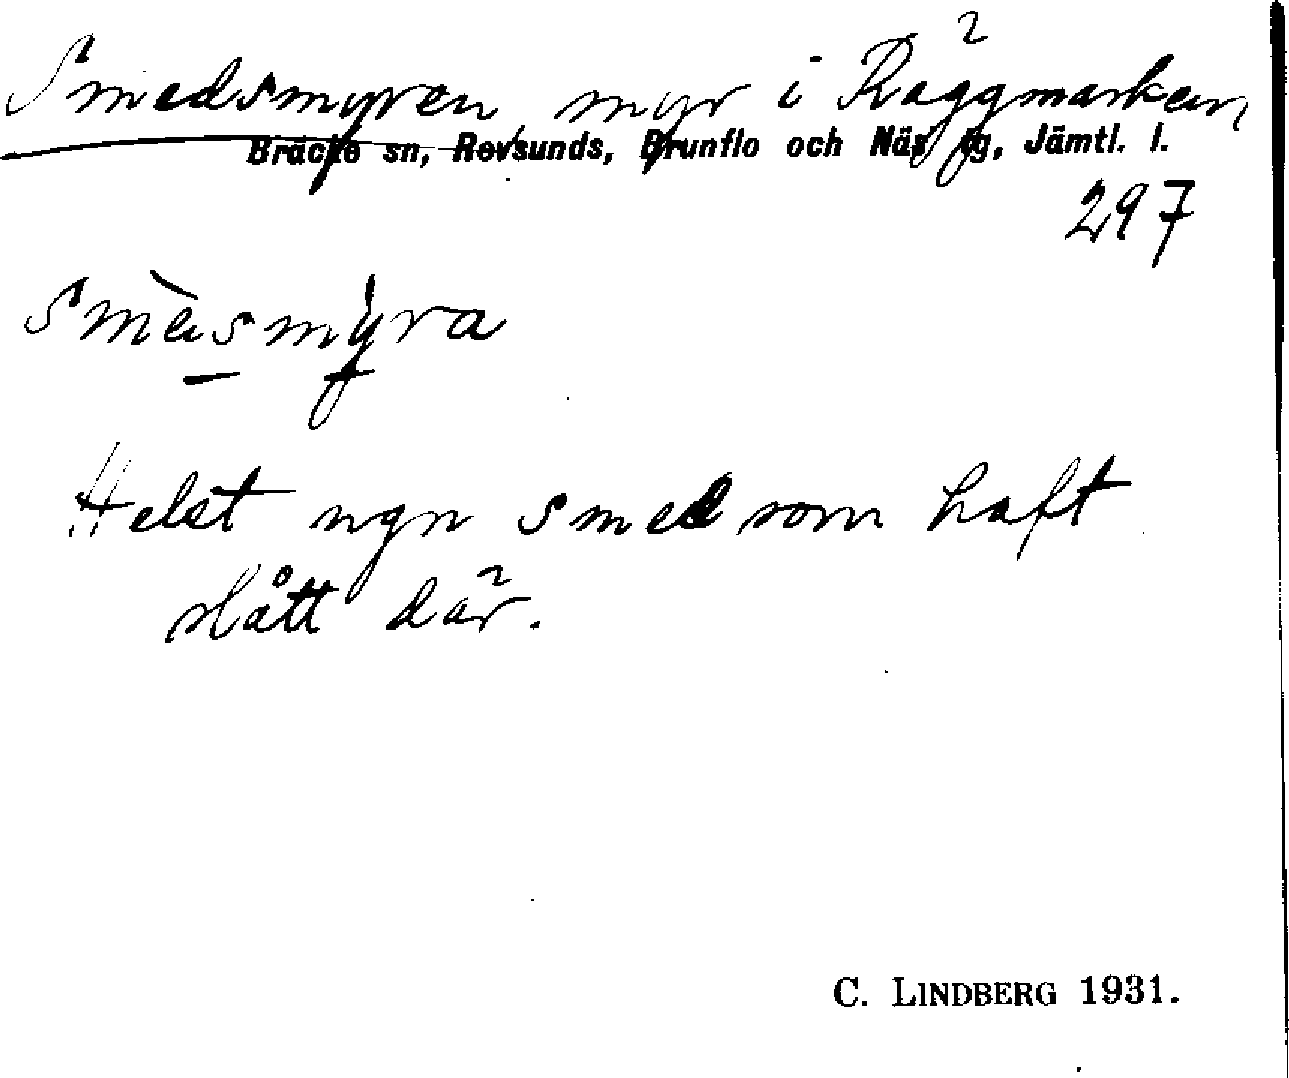 Smedsmyren myr i Räggmarken
Bräcke sn, Revsunds, Brunflo och Näs tg, Jämtl. l.
297
smèsmýra
Helst ngn smed som haft
slått där.
C. LINDBERG 1931.